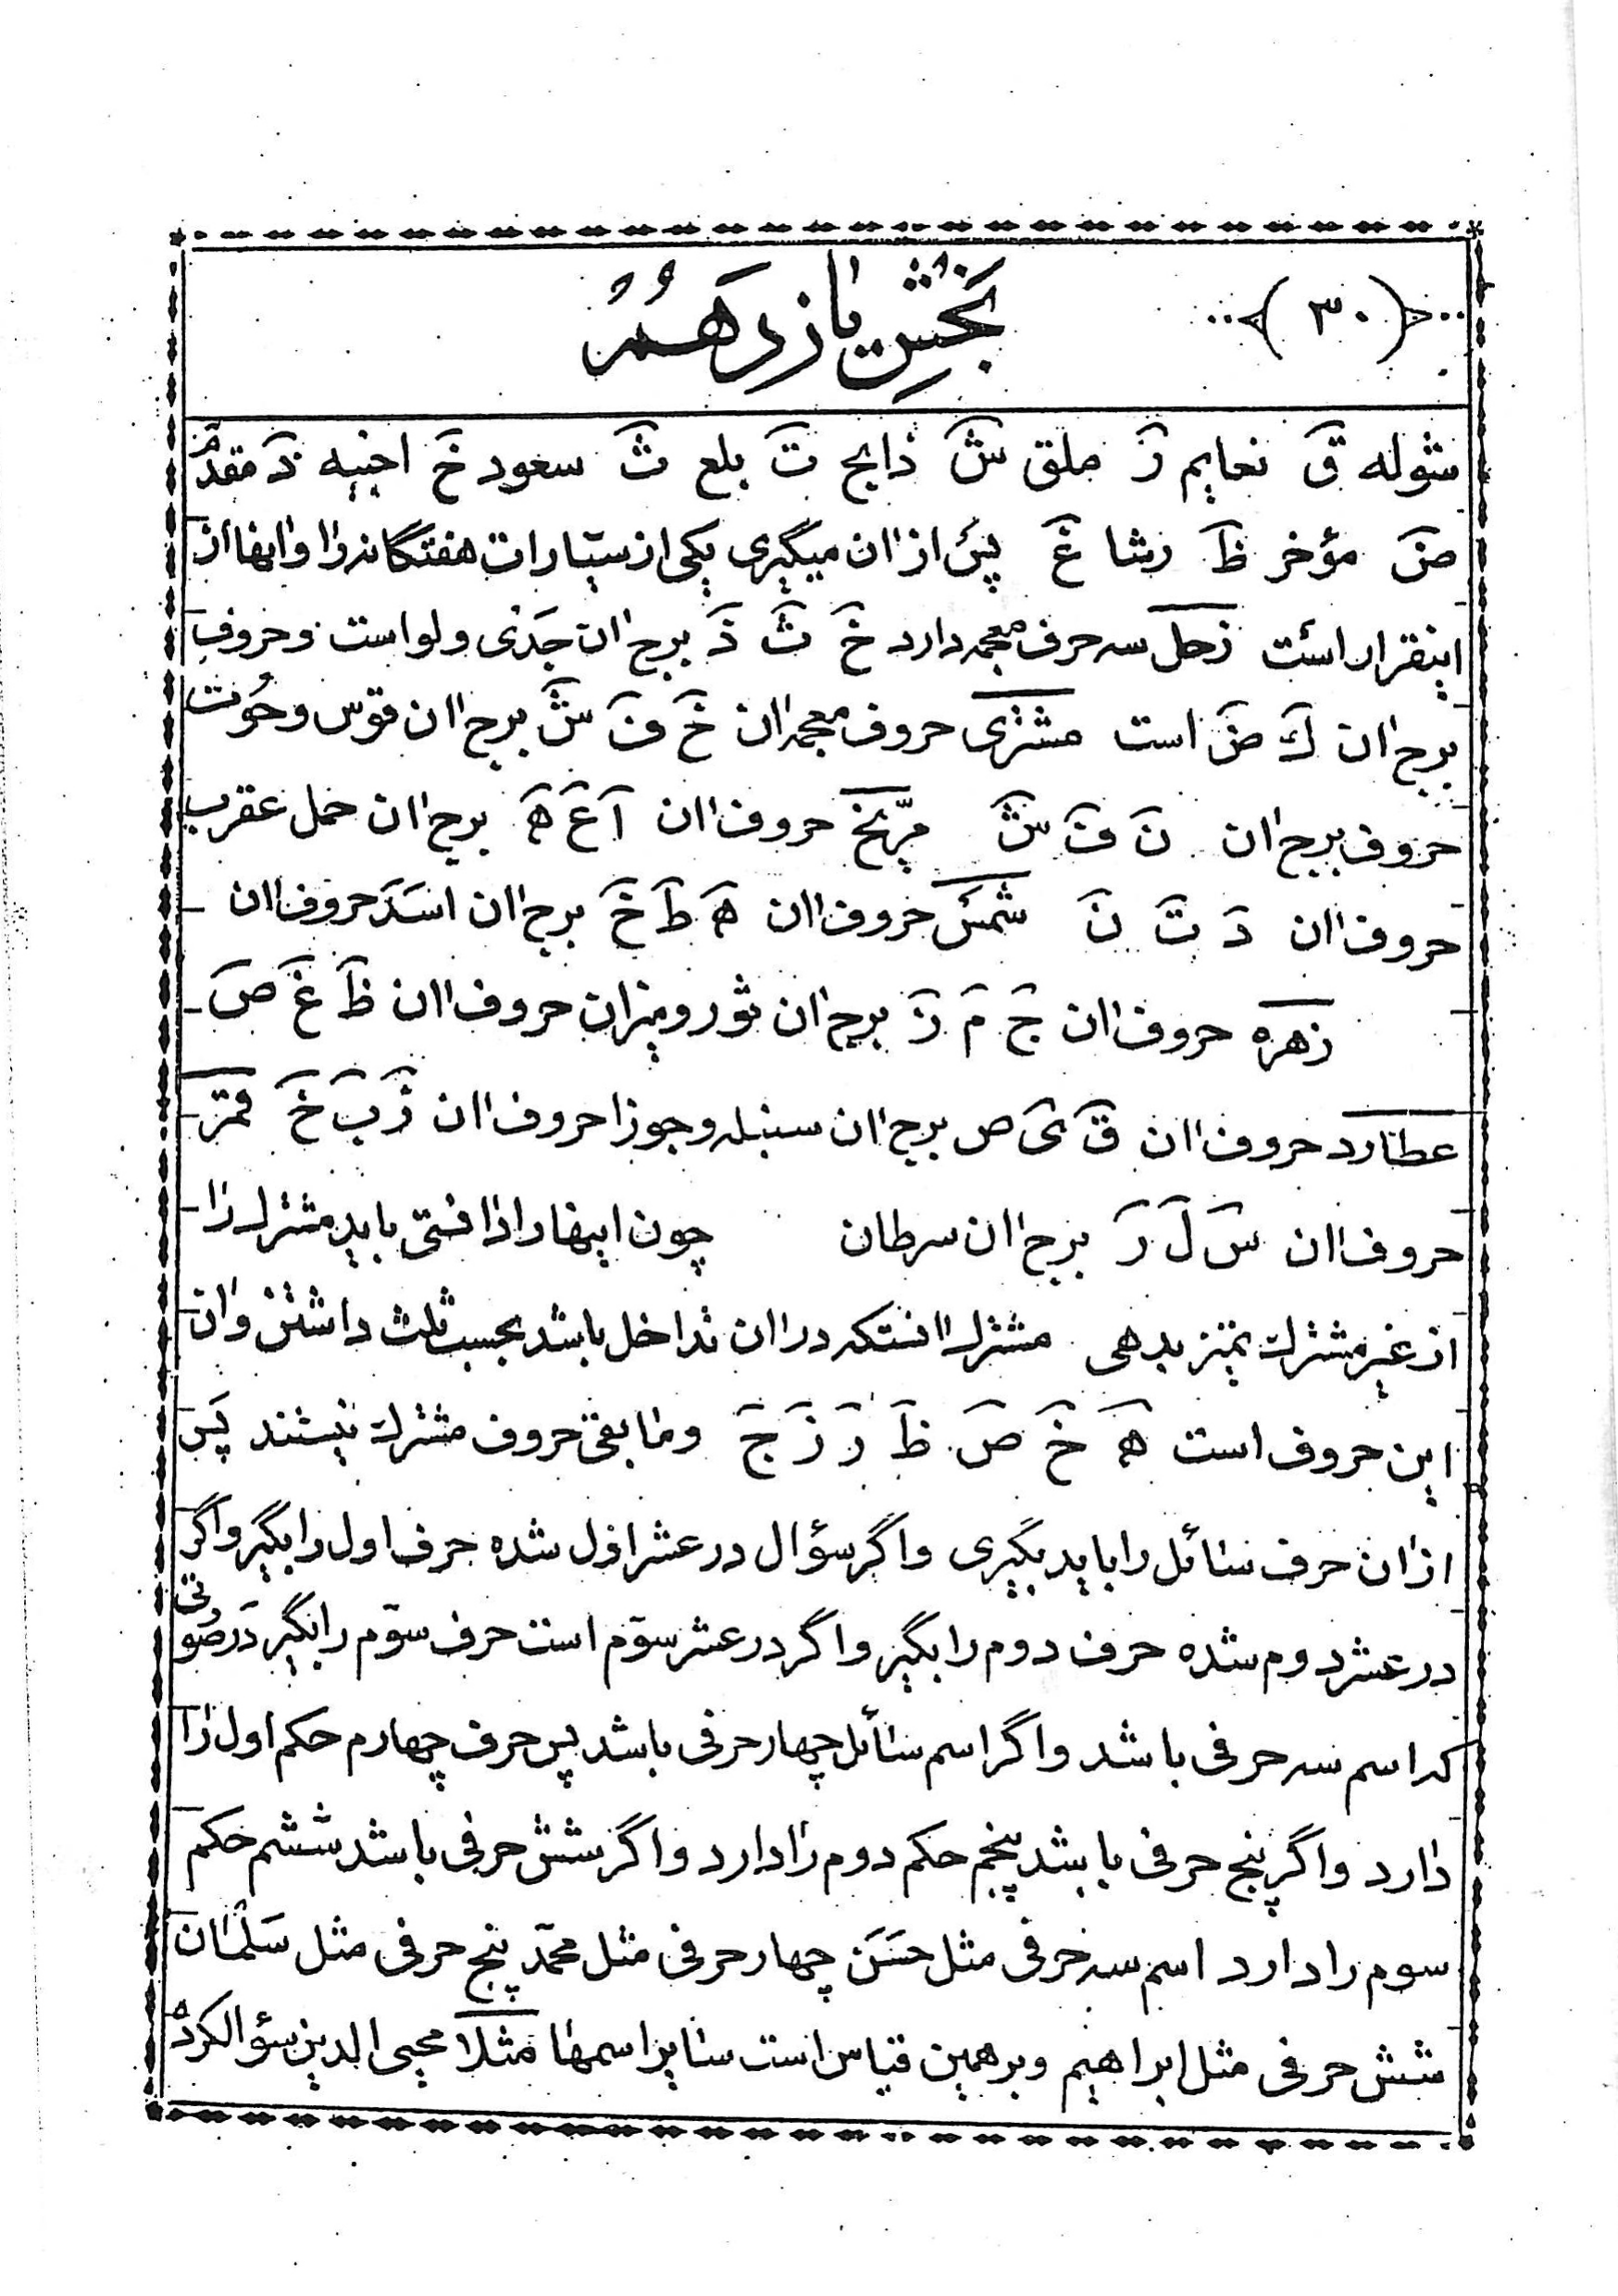 (۳۰)
بخش یازدهم
شوله ق نعایم ر ملق ش ذابح ت بلع ث سعود خ اخبیه ذ مقدم
ض مؤخر ظ رشا غ پس از ان میگیری یکی از سیارات هفتگانه را و انها از
اینقرار است زحل سه حرف معجمه دارد خ ث ذ برج ان جدی و لو است و حروف
برج ان ك ض است مشتری حروف معجمه ان خ ف ش برج ان قوس و حوت
حروف برج ان ن ف ش مریخ حروف ان آ ع ه برج ان حمل عقرب
حروف ان د ت ن شمس حروف ان ه ط خ برج ان اسد حروف ان
زهره حروف ان ج م ز برج ان ثور و میزان حروف ان ظ غ ص
عطارد حروف ان ق ی ص برج ان سنبله و جوزا حروف ان ز ب خ قمر
حروف ان س ل ر برج ان سرطان چون اینها را دانستی باید مشترك را
از غیر مشترك تمیز بدهی مشترك انستکه در ان تداخل باشد بحسب ثلث داشتن و ان
این حروف است ه خ ص ظ ر ز ج و مابقی حروف مشترك نیستند پس
از ان حرف سائل را باید بگیری و اگر سؤال در عشر اول شده حرف اول را بگیر و اگر
در عشر دوم شده حرف دوم را بگیر و اگر در عشر سوم است حرف سوم را بگیر در صورتی
که اسم سه حرفی باشد و اگر اسم سائل چهار حرفی باشد پس حرف چهارم حکم اول را
دارد و اگر پنج حرفی باشد پنجم حکم دوم را دارد و اگر شش حرفی باشد ششم حکم
سوم را دارد اسم سه حرفی مثل حسن چهار حرفی مثل محمد پنج حرفی مثل سلمان
شش حرفی مثل ابراهیم و برهمین قیاس است سایر اسمها مثلا محیی الدین سؤال کرده